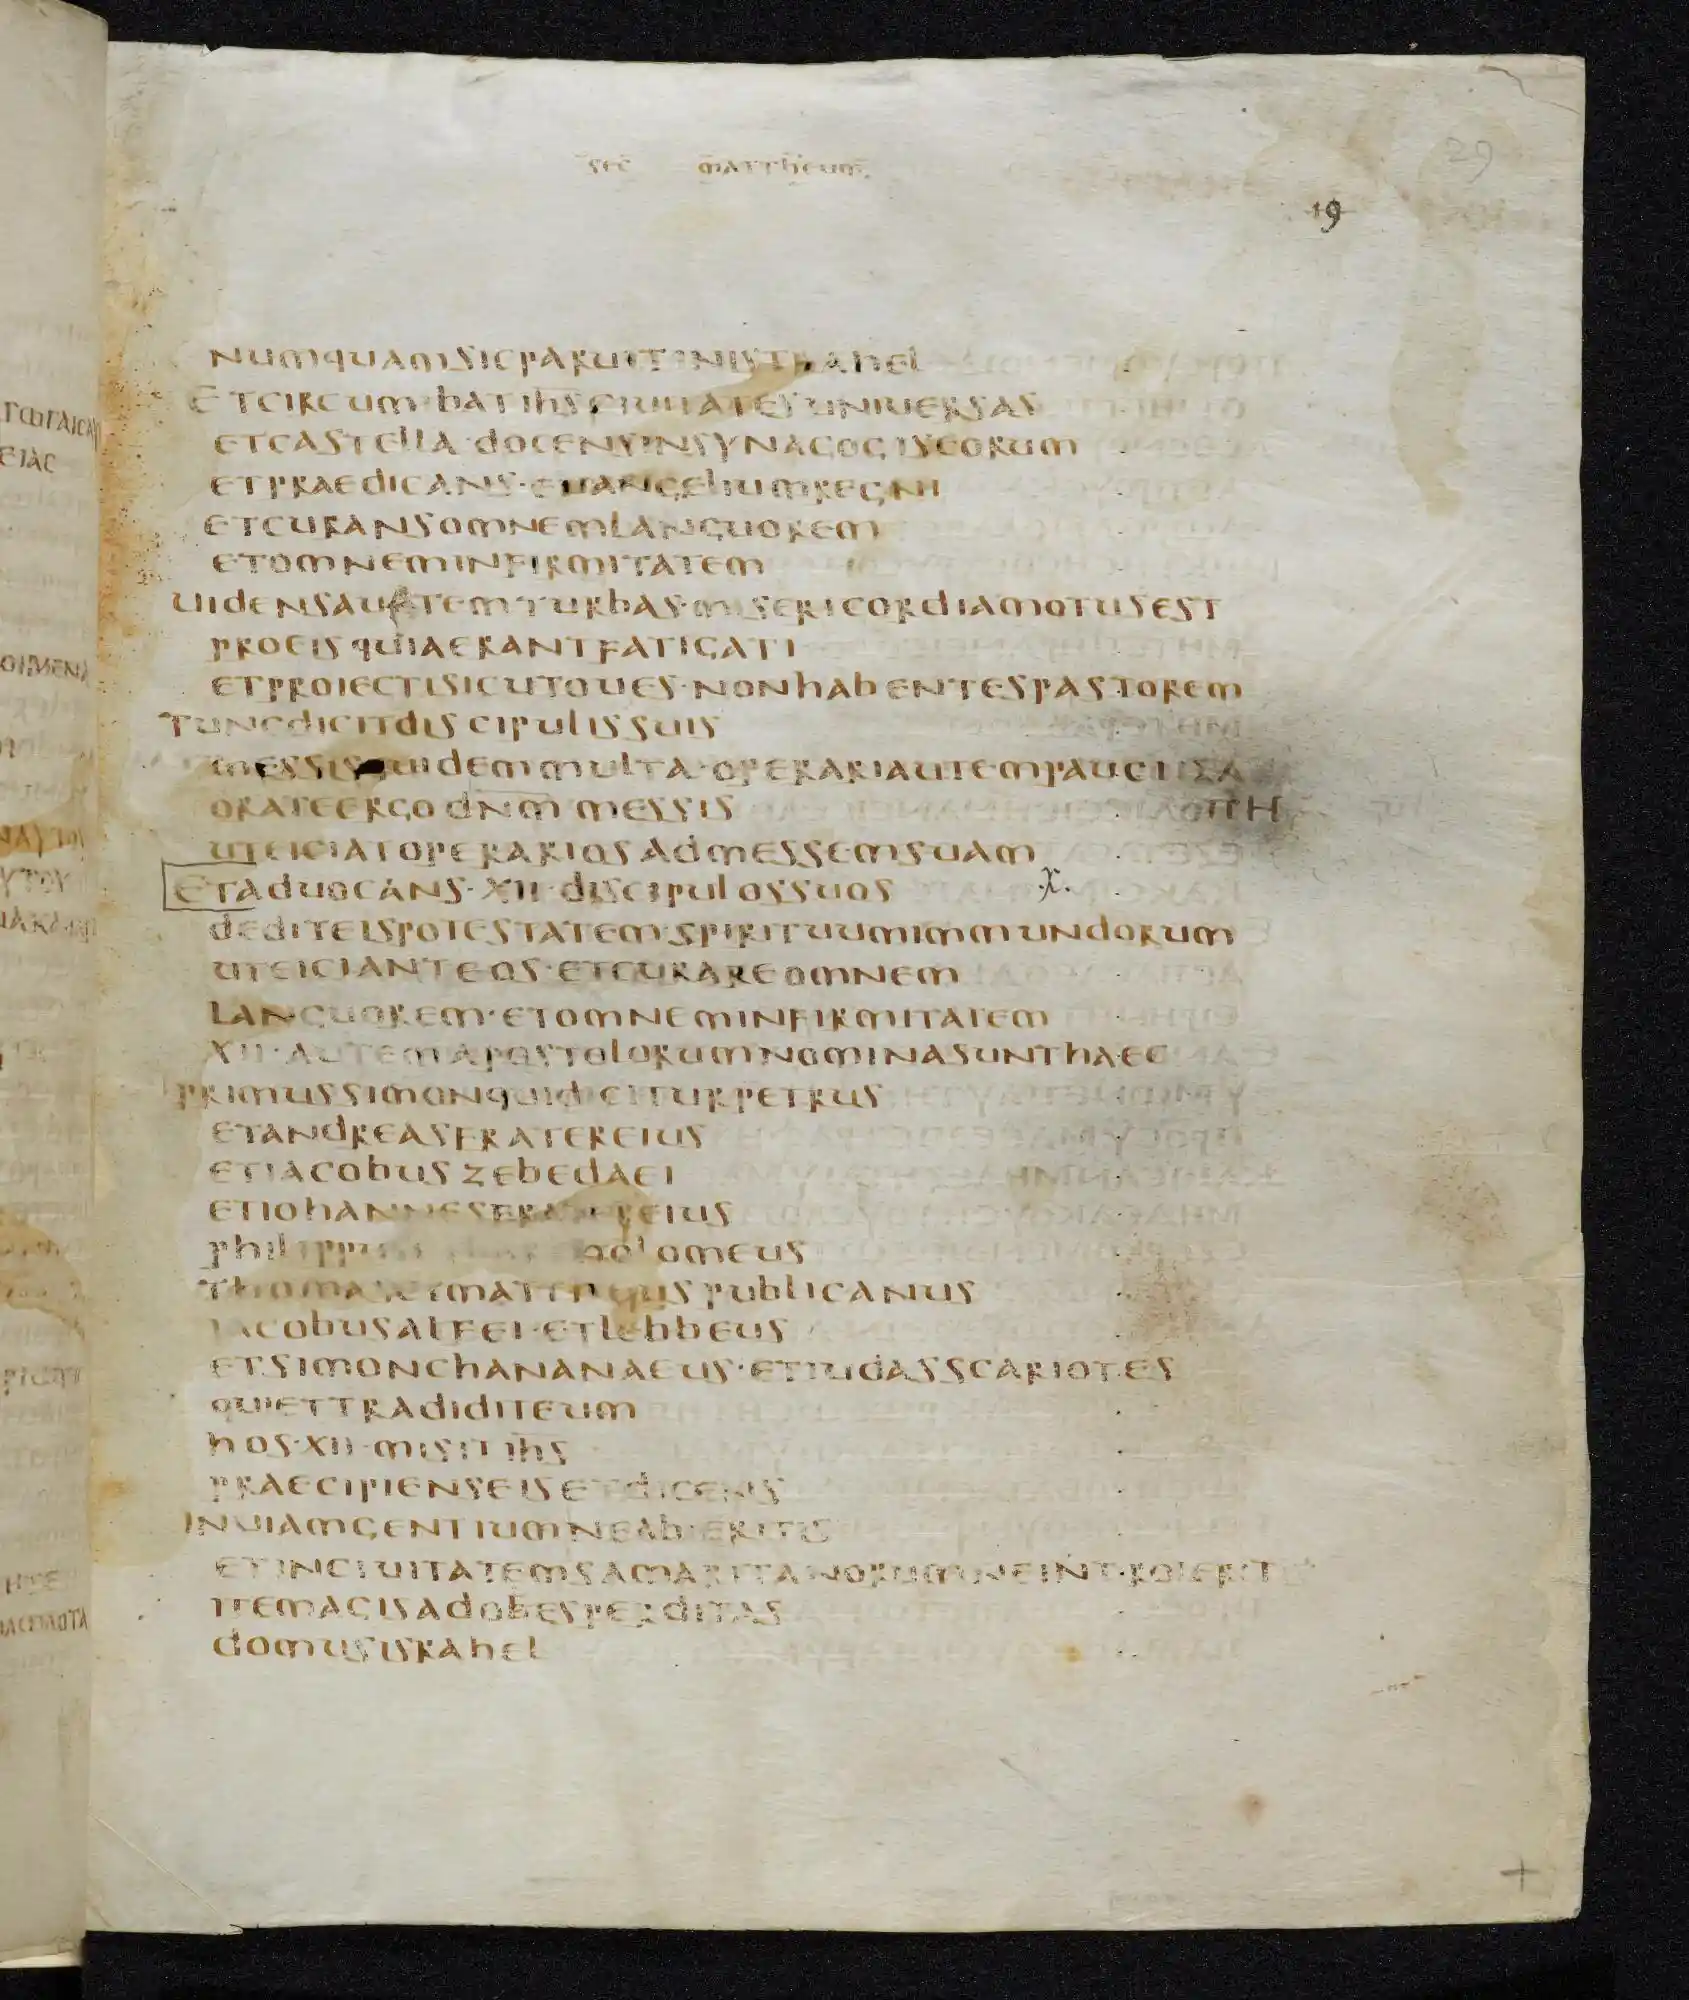 sec mattheum
29
19
numquamsicparuitinistrahel
etcircumibatihsciuitatesuniuersas
etcastella·docensinsynagogiseorum
etpraedicans·euangeliumregni
etcuransomnemlanguorem
etomneminfirmitatem
uidensautemturbas·misericordiamotusest
proeisquiaerantfatigati
etproiectisicutoues·nonhabentespastorem
tuncdicitdiscipulissuis
messisquidemmulta·operariautempauci
orateergodnm messis
uteiciatoperariosadmessemsuam
etaduocans·xii·discipulossuos .X.
dediteispotestatem·spirituumimmundorum
uteicianteos·etcurareomnem
languorem·etomneminfirmitatem
xii·autemapostolorumnominasunthaec
primussimonquidiciturpetrus
etandreasfratereius
etiacobuszebedaei
etiohannesfratereius
philippus olomeus
thomasetmattheuspublicanus
iacobusalfei·etlebbeus
etsimonchananaeus·etiudasscariotes
quiettradiditeum
hos·xii·misitihs
praecipienseisetdicens
inuiamgentiumneabieritis
etinciuitatemsamaritanorumneintroieritis
itemagisadobesperditas
domusisrahel